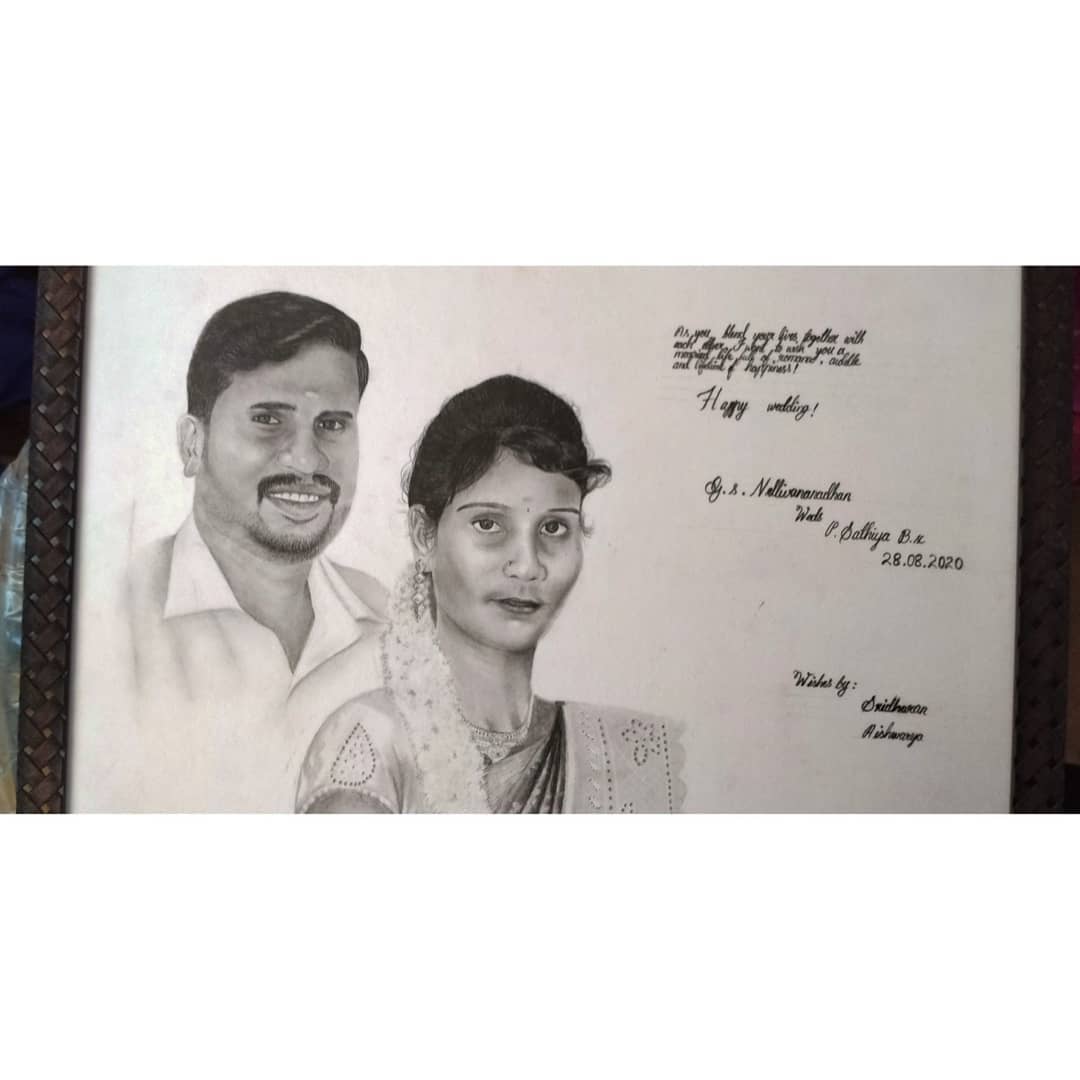 As you blend your lives together with
each other, I want to wish you a
married life full of romance, cuddle
and lifetime of happiness!
Happy wedding!
G.S. Nellivananadhan
Weds
P. Sathiya B.sc
28.08.2020
Wishes by:
Sridharan
Aishwarya